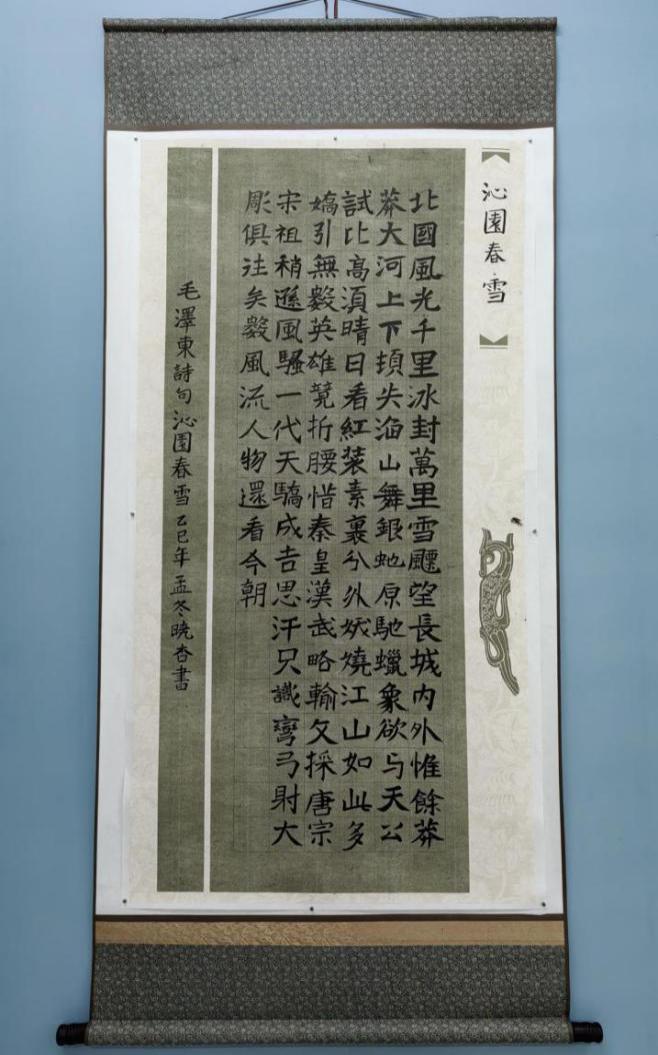 沁園春·雪
北國風光千里冰封萬里雪飃望長城内外惟餘莽
莽大河上下頓失滔山舞銀虵原馳蠟象欲与天公
試比高須晴日看紅装素裹兮外妖嬈江山如此多
嬌引無數英雄競折腰惜秦皇漢武略輸文採唐宗
宋祖稍遜風騷一代天驕成吉思汗只識彎弓射大
彫俱往矣數風流人物還看今朝
毛澤東詩句沁園春雪乙巳年孟冬曉杏書